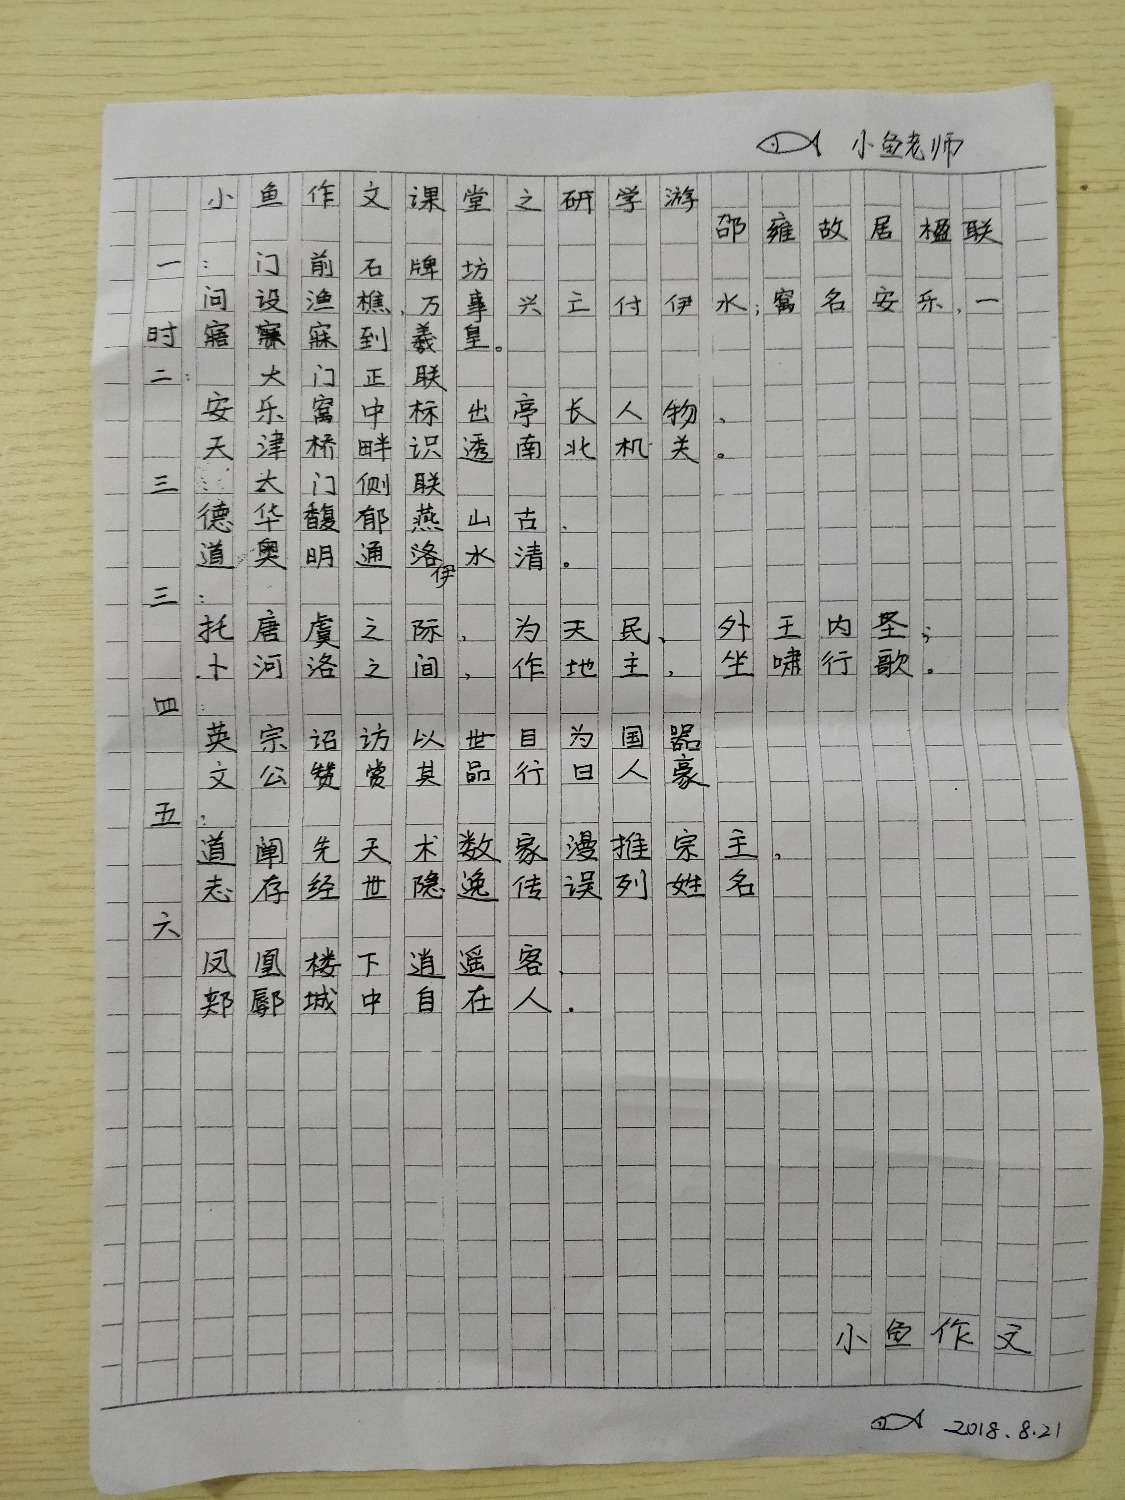 小鱼老师
小鱼作文课堂之研学游
邵雍故居楹联
一：门前石牌坊
问设渔樵，万事兴亡付伊水；窝名安乐，一
时寤寐到羲皇。
二：大门正联
安乐窝中标出亭长人物、
天津桥畔识透南北机关。
三：大门侧联
德华馥郁燕山古、
道奥明通洛水清。
伊
三：
托唐虞之际，为天民，外王内圣；
卜河洛之间，作地主，坐啸行歌。
四：
英宗诏访以世目为国器
文公赞赏其品行曰人豪
五：
道阐先天术数家漫推宗主，
志存经世隐逸传误列姓名
六
凤凰楼下逍遥客、
郏鄏城中自在人。
小鱼作文
2018.8.21